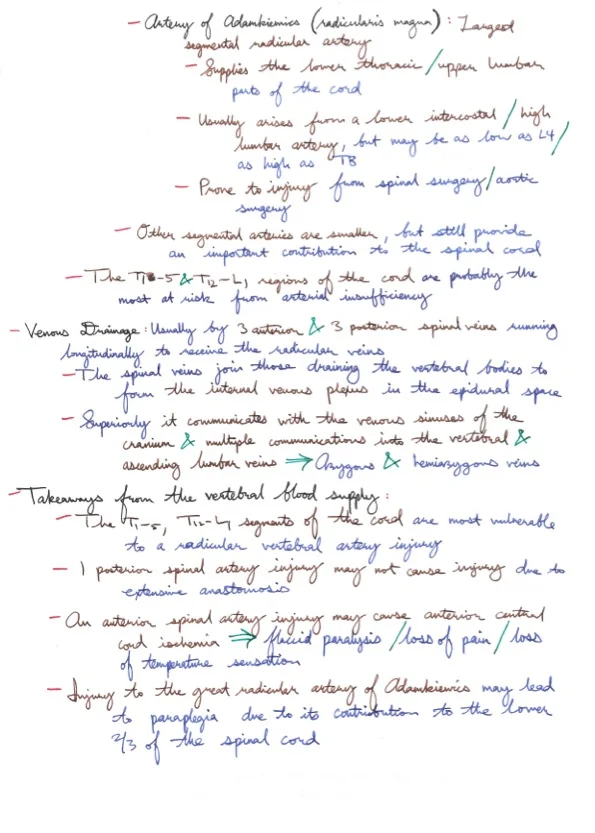 - Artery of Adamkiewics (radicularis magna): Largest
segmental radicular artery
- Supplies the lower thoracic/upper lumbar
parts of the cord
- Usually arises from a lower intercostal/high
lumbar artery, but may be as low as L4/
as high as T8
- Prone to injury from spinal surgery/aortic
surgery
- Other segmental arteries are smaller, but still provide
an important contribution to the spinal cord
- The T1-5 & T12-L1 regions of the cord are probably the
most at risk from arterial insufficiency
- Venous Drainage: Usually by 3 anterior & 3 posterior spinal veins running
longitudinally to receive the radicular veins
- The spinal veins join those draining the vertebral bodies to
form the internal venous plexus in the epidural space
- Superiorly it communicates with the venous sinuses of the
cranium & multiple communications into the vertebral &
ascending lumbar veins ⇒ Azygous & hemiazygous veins
- Takeaways from the vertebral blood supply:
- The T1-5, T12-L1 segments of the cord are most vulnerable
to a radicular vertebral artery injury
- 1 posterior spinal artery injury may not cause injury due to
extensive anastomosis
- An anterior spinal artery injury may cause anterior central
cord ischemia ⇒ flaccid paralysis/loss of pain/loss
of temperature sensation
- Injury to the great radicular artery of Adamkiewics may lead
to paraplegia due to its contribution to the lower
2/3 of the spinal cord